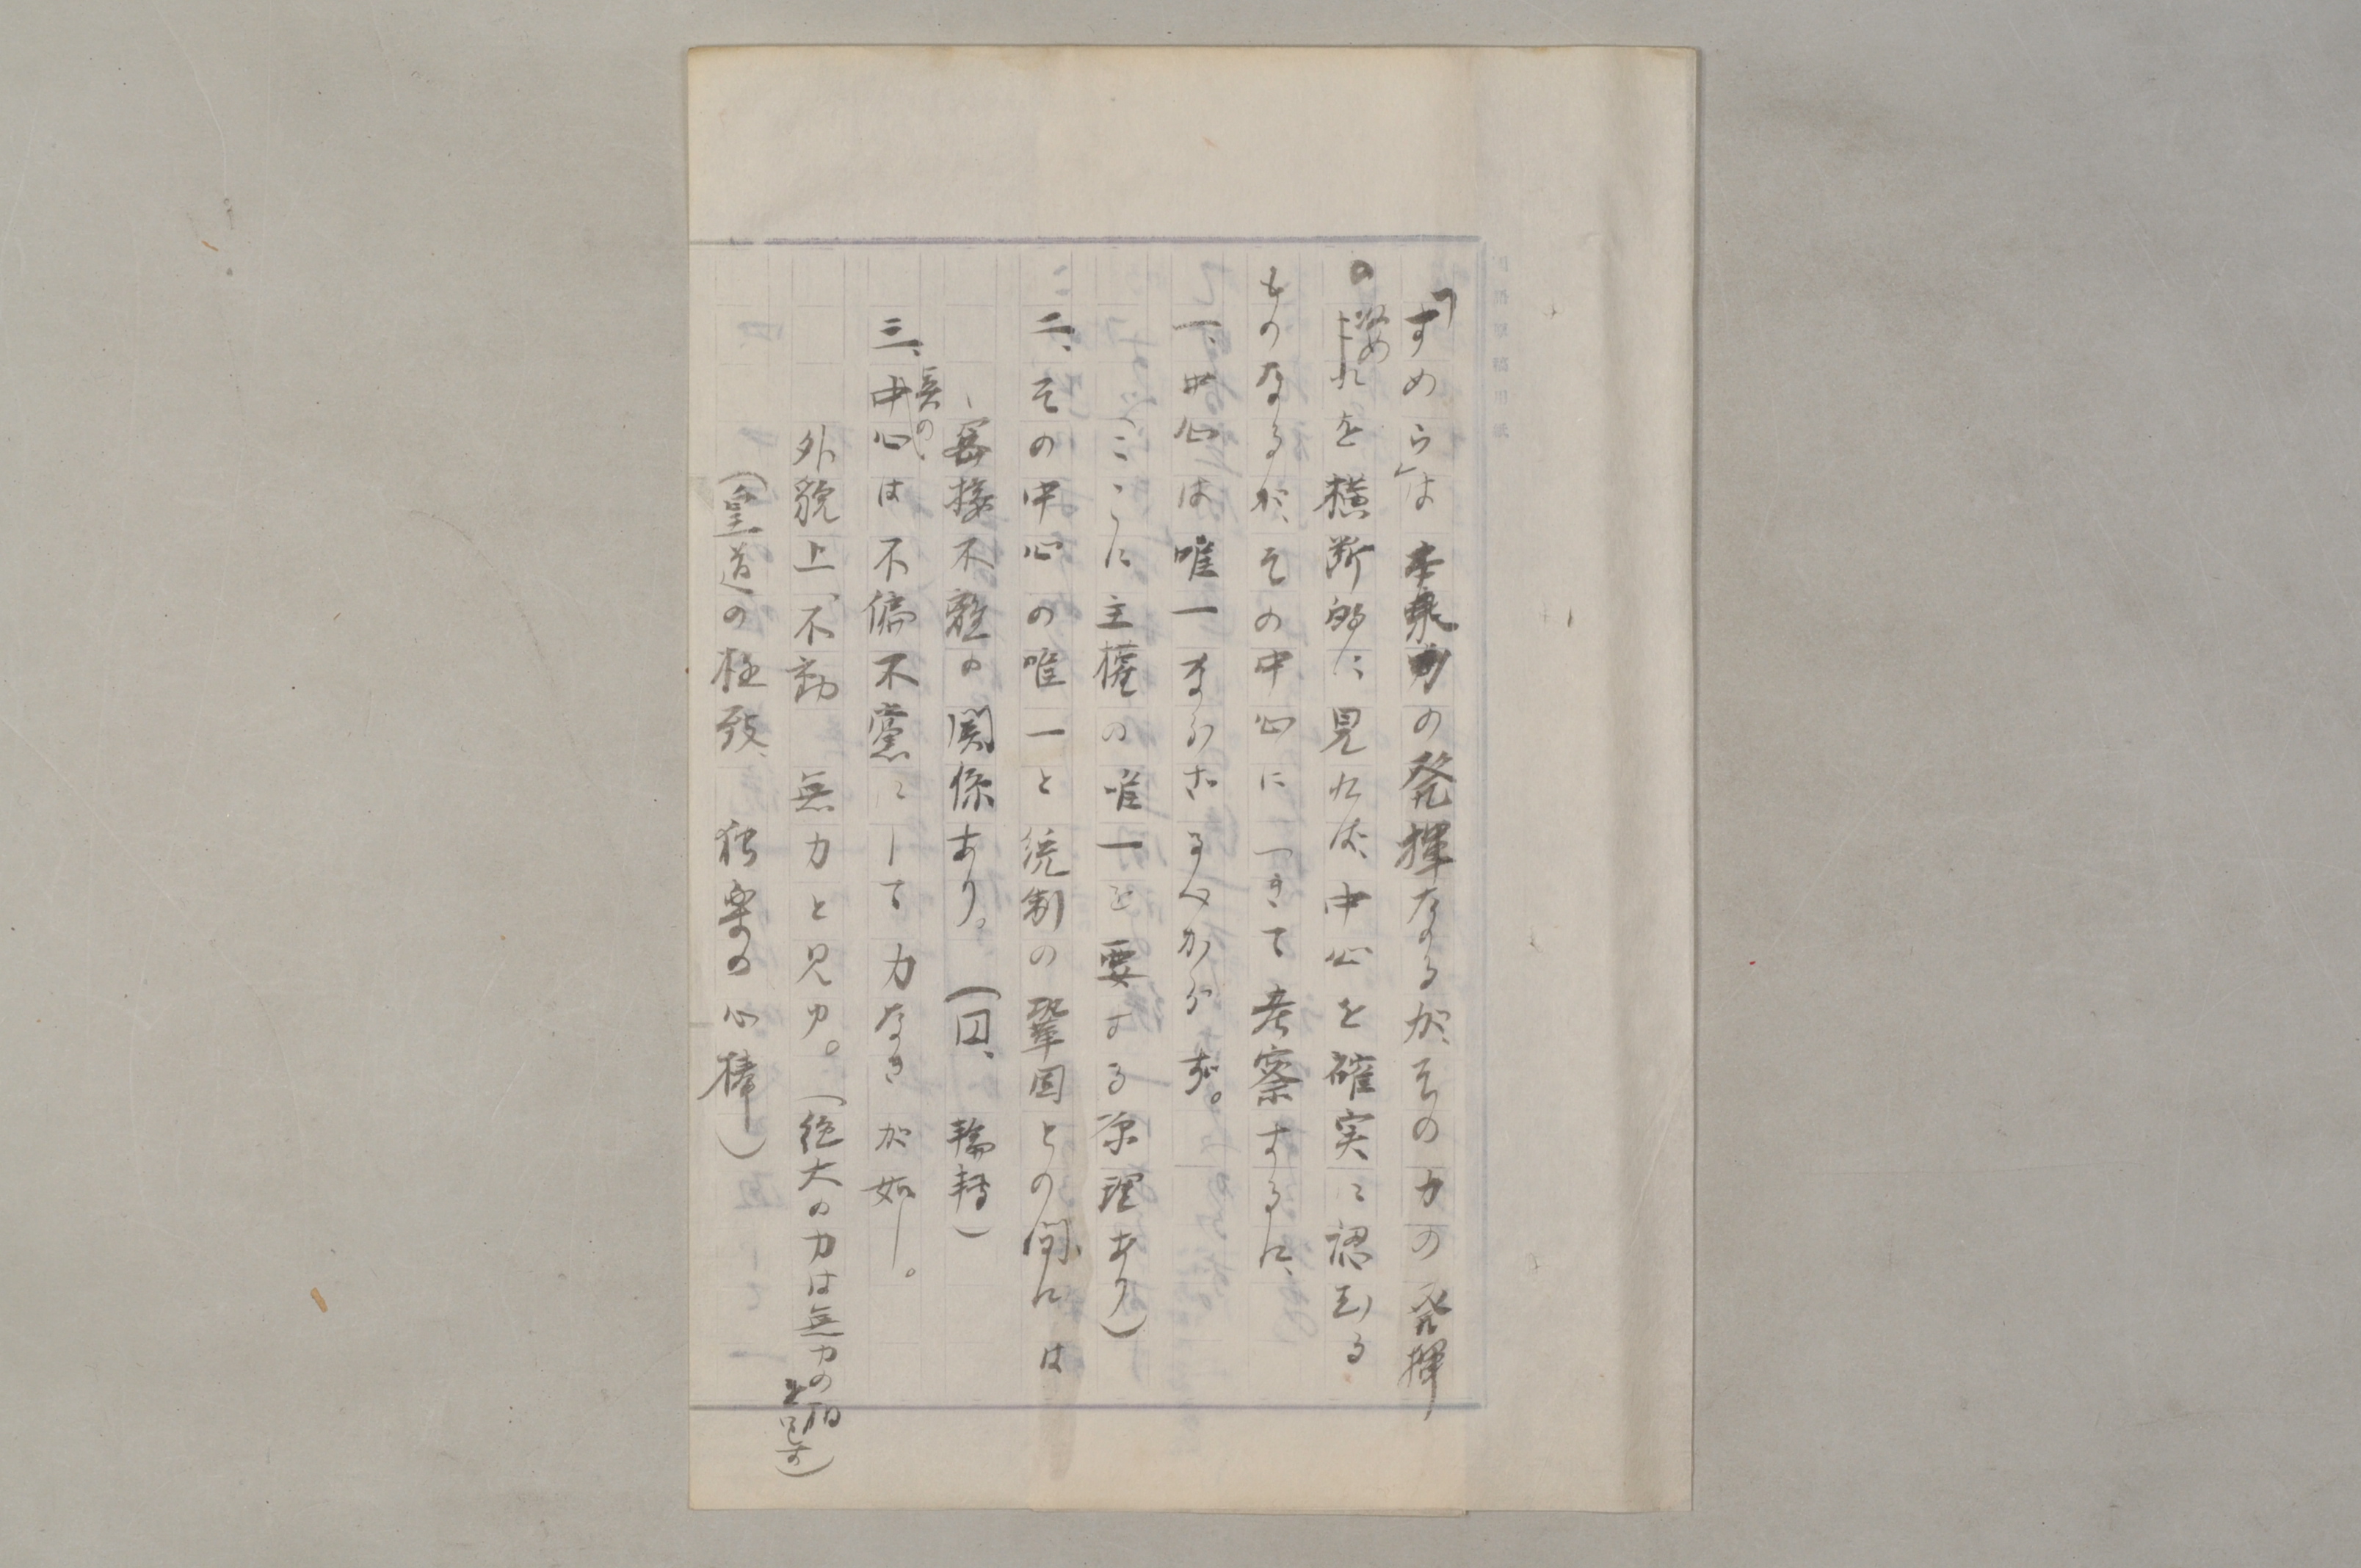 「すめら」は の発揮なるが、その力の発揮
の姿めを横断的に見れば、中心を確実に認むる
ものなるが、その中心につきて考察するに、
一、中心は唯一ならざるべからず。
（ここに主権の唯一を要する原理あり）
二、その中心の唯一と統制の鞏固との間には
密接不離の関係あり。（円、輪轉）
三、真の中心は不偏不黨にして力なきが如し。
外貌上、不動 無力と見ゆ。（絶大の力は無力の相を呈す）
（皇道の極致、独楽の心棒）